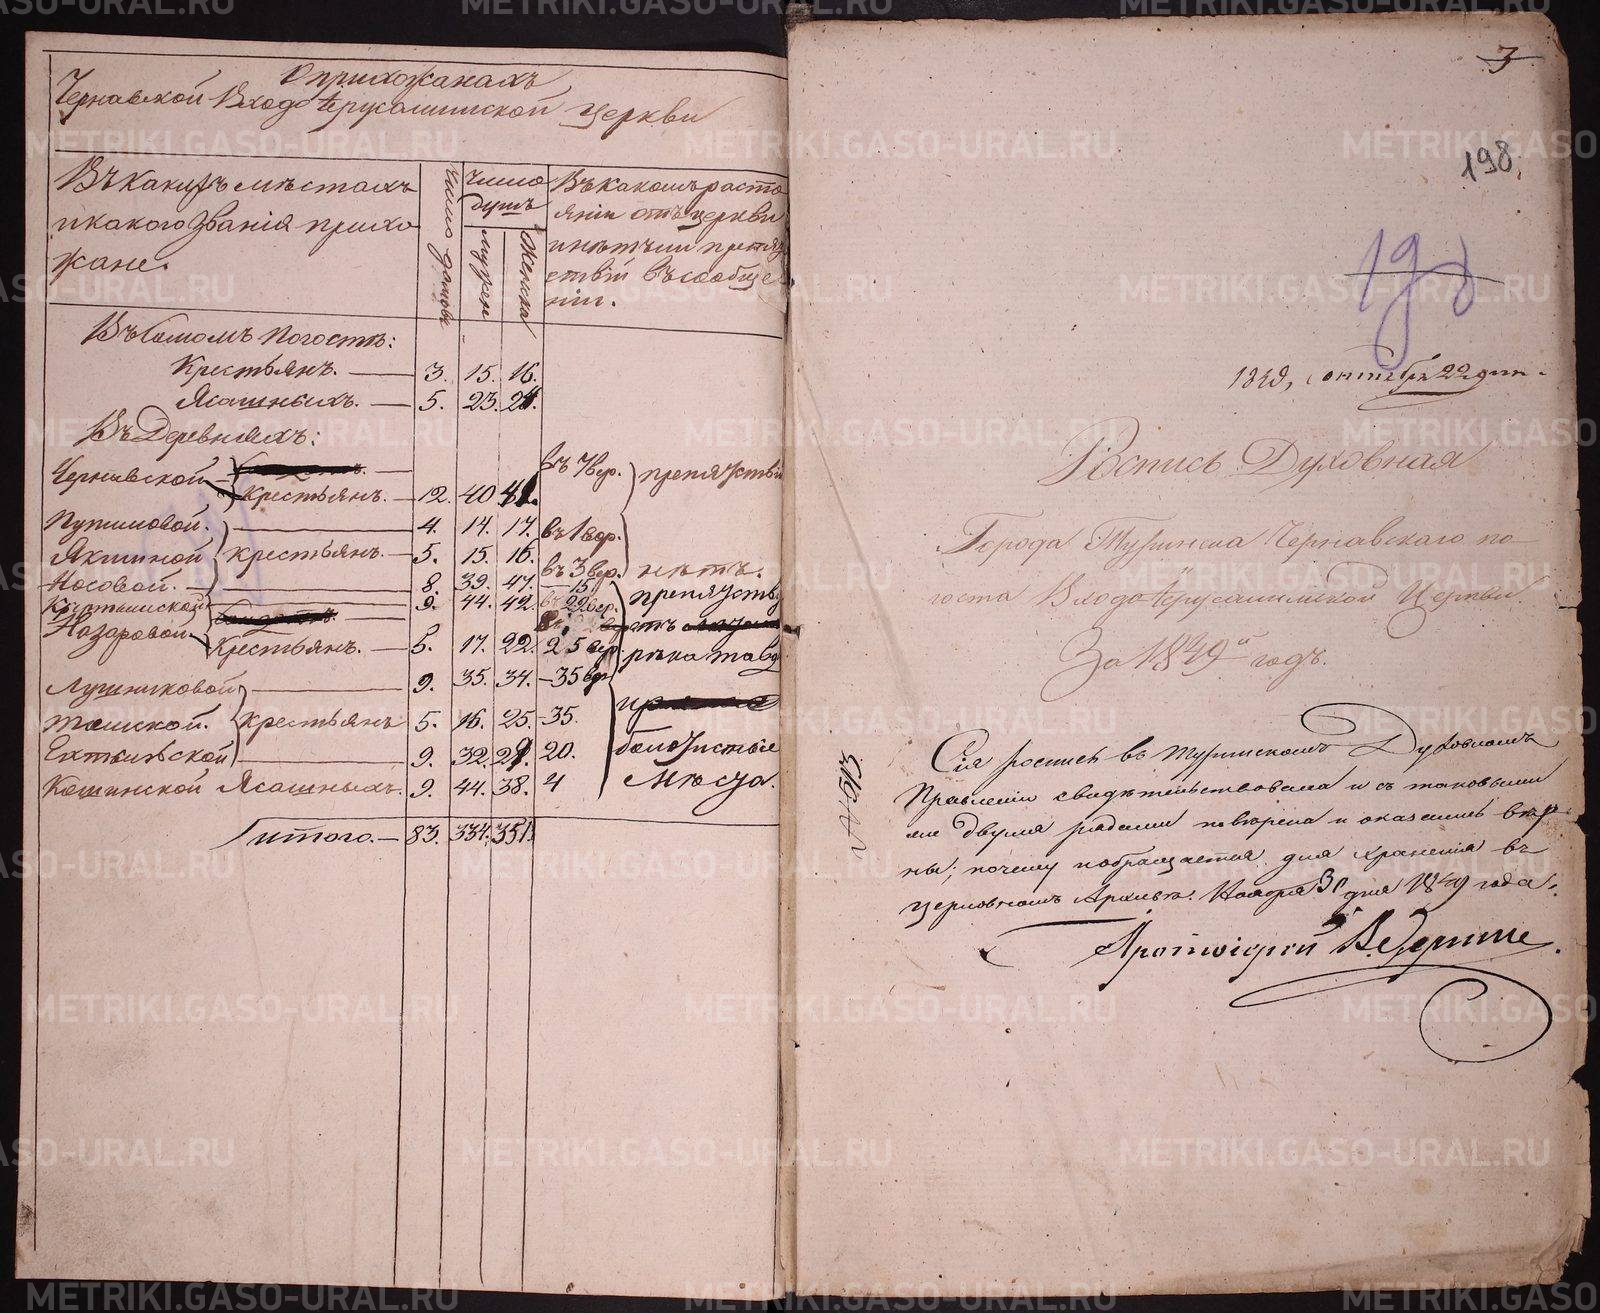 О прихожанахъ
Чернавской Входоіерусалимской церкви
Въ какихъ мѣстахъ
и какого званія прихо
жане.
Число дворовъ
Число
душъ
Мужеск
Женска
Въ какомъ расто
яніи отъ церкви
и нѣтъ ли препят
ствій въ сообще
ніи.
Въ самомъ погостѣ:
Крестьянъ. 3. 15. 16.
Ясашныхъ. 5. 23. 24.
Въ Деревняхъ:
Чернавской
Крестьянъ. 12. 40 41. въ 7 вер. препятствій
4. 14. 17. въ 1 вер.
Крестьянъ. 5. 15. 16. въ 3 вер. нѣтъ.
Носовой. 8. 39. 47. 15
9. 44. 42. 22 вер. препятству
Назаровой
Крестьянъ. 5. 17. 22. 25 вер. рѣка Тавда
9. 35. 34. 35 вер
Крестьянъ 5. 16. 25. 35.
9. 32. 29. 20. болотистые
Кошинской Ясашныхъ. 9. 44. 38. 4 мѣста.
Итого. 83. 334. 351.
3
198.
198
1849, октября 22 дня.
Роспись Духовная
Города Туринска Чернавскаго по-
госта Входоіерусалимской Церкви.
За 1849й годъ.
Сія роспись въ Туринскомъ Духовномъ
Правленіи свидѣтельствована и съ таковыми
же двумя рядами повѣрена и оказались вѣр-
ны; почему и обращается для храненія въ
церковномъ Архивѣ. Ноября дня 1849 года.
Протоіерей
METRIKI.GASO-URAL.RU